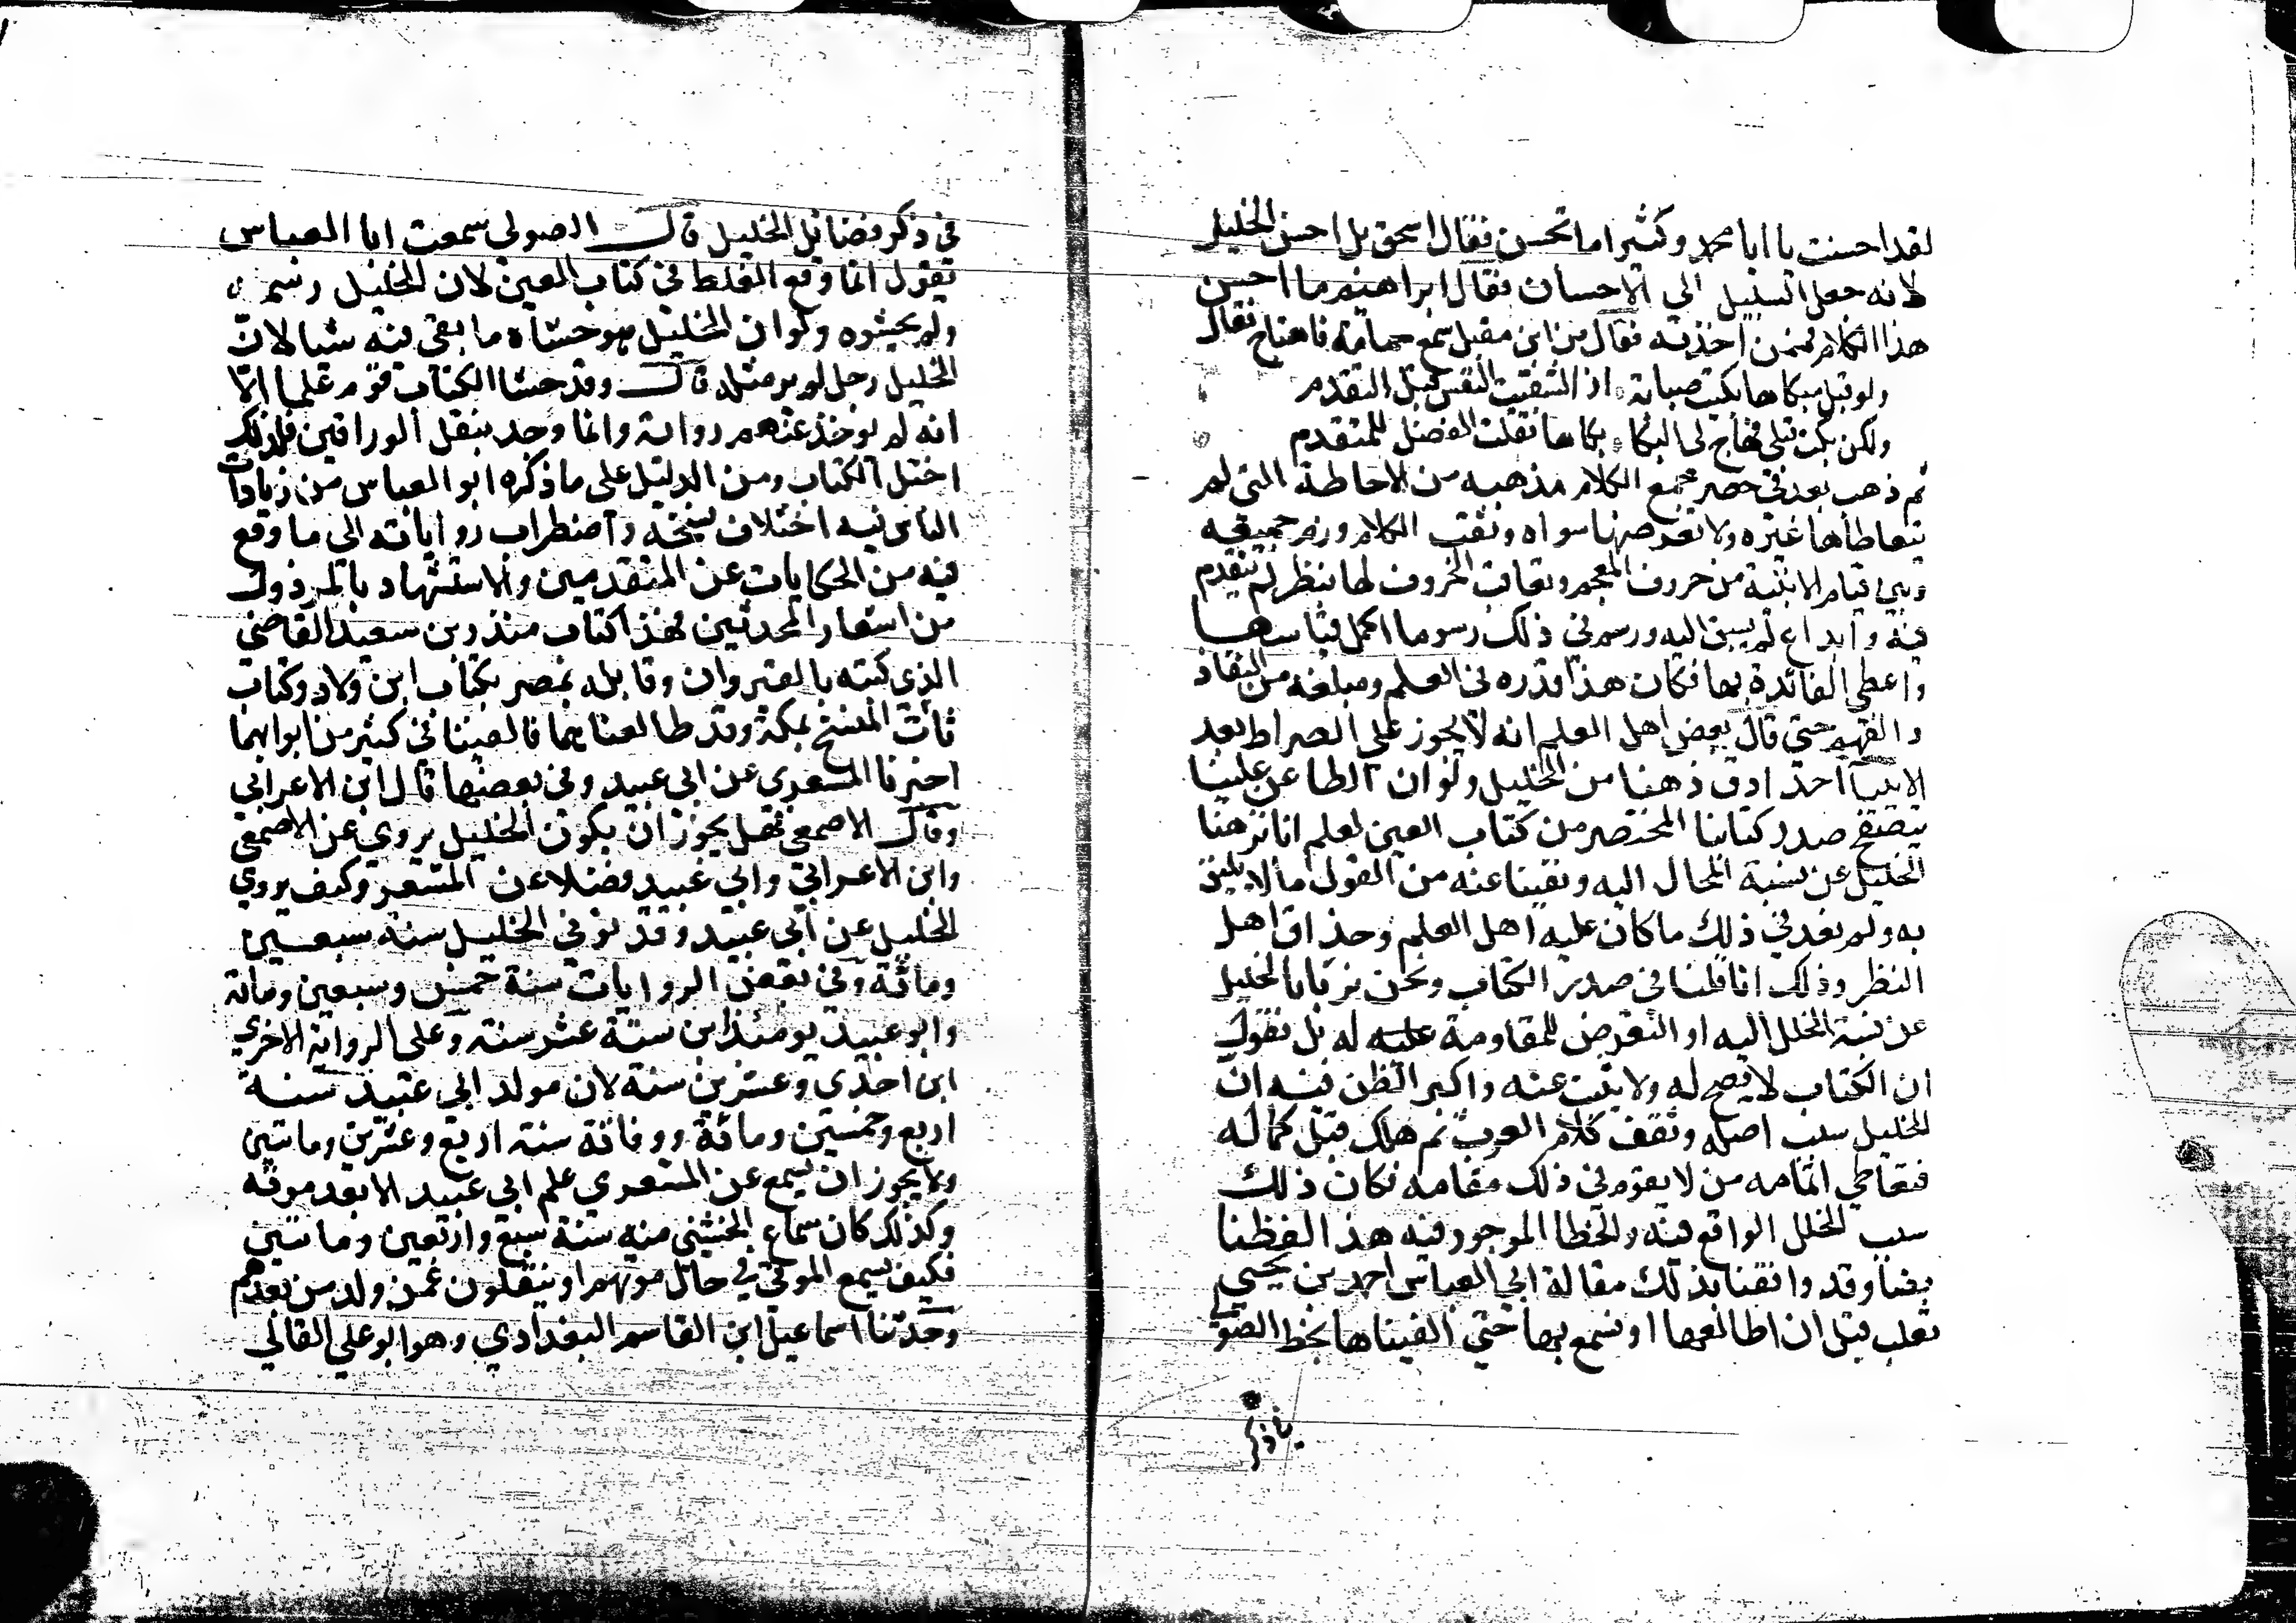 لقد احسنت يا ابا محمد وكثيرا ما تحسن فقال اسحق بل احسن الخليل
لانه جعل السبيل الي الاحسان فقال ابراهيم ما احسن
هذا الكلام فممن اخذته فقال من ابن مقبل سمع حمامة فاهتاج فقال
ولو قبل مبكاها بكيت صبابة اذا لشفيت النفس قبل التقدم
ولكن بكت قبلي فهاج لي البكا بكاها فقلت الفضل للمتقدم
ثم ذهب بعد في حصر جميع الكلام مذهبه من الاحاطة التي لم
يتعاطاها غيره ولا تعرضها سواه وثقف الكلام وزم جميعه
وبين قيام الابنية من حروف المعجم وتعاقب الحروف لها بنظر لم يتقدم
فيه وابداع لم يسبق اليه ورسم في ذلك رسوما اكمل قياسها
واعطي الفائدة بها فكان هذا قدره في العلم ومبلغه من النفاذ
والفهم حتي قال بعض اهل العلم انه لا يجوز علي الصراط بعد
الانبيا احد ادق ذهنا من الخليل ولو ان الطاعن علينا
يتصفح صدر كتابنا المختصر من كتاب العين لعلم انا نزهنا
الخليل عن نسبة المحال اليه ونفينا عنه من القول ما لا يليق
به ولم نعد في ذلك ما كان عليه اهل العلم وحذاق اهل
النظر وذلك انا قلنا في صدر الكتاب ونحن نربا بالخليل
عن نسبة الخلل اليه او التعرض للمقاومة عليه له بل نقول
ان الكتاب لا يصح له ولا يثبت عنه واكبر الظن فيه ان
الخليل سبب اصله وثقف كلام العرب ثم هلك قبل كماله
فتعاطي اتمامه من لا يقوم في ذلك مقامه فكان ذلك
سبب الخلل الواقع فيه والخطا الموجود فيه هذا لفظنا
نصا وقد وافقنا بذلك مقالة ابي العباس احمد بن يحيي
ثعلب قبل ان اطالعها او نسمع بها حتي الفيناها بخط الصولي
في ذكر
في ذكر فضائل الخليل قال الصولي سمعت ابا العباس
يقول انما وقع الغلط في كتاب العين لان الخليل رسمه
ولم يحشوه ولو ان الخليل هو حشاه ما بقي فيه شيا لان
الخليل رجل لم ير مثله قال وقد حشا الكتاب قوم علما الا
انه لم يوخذ عنهم رواية وانما وجد بنقل الوراقين فلذلك
اختل الكتاب ومن الدليل علي ما ذكره ابو العباس من زيادات
الناس فيه اختلاف نسخه واضطراب رواياته الي ما وقع
فيه من الحكايات عن المتقدمين والاستشهاد بالمرذول
من اشعار المحدثين فهذا كتاب منذر بن سعيد القاضي
الذي كتبه بالقيروان وقابله بمصر بكتاب ابن ولاد وكتاب
ثابت المنتسخ بمكة وقد طالعناهما فالفينا في كثير من ابوابهما
اخبرنا المسعري عن ابي عبيد وفي بعضها قال ابن الاعرابي
وقال الاصمعي فهل يجوز ان يكون الخليل يروي عن الاصمعي
وابن الاعرابي وابي عبيد فضلا عن المسعري وكيف يروي
الخليل عن ابي عبيد وقد توفي الخليل سنة سبعين
ومائة وفي بعض الروايات سنة خمس وسبعين ومائة
وابو عبيد يومئذ ابن ستة عشر سنة وعلي الرواية الاخري
ابن احدي وعشرين سنة لان مولد ابي عبيد سنة
اربع وخمسين ومائة ووفاته سنة اربع وعشرين ومايتين
ولا يجوز ان يسمع عن المسعري علم ابي عبيد الا بعد موته
وكذلك كان سماع الخشني منه سنة سبع واربعين ومايتين
فكيف يسمع الموتي في حال موتهم او ينقلون عمن ولد من بعدهم
وحدثنا اسماعيل ابن القاسم البغدادي وهو ابو علي القالي